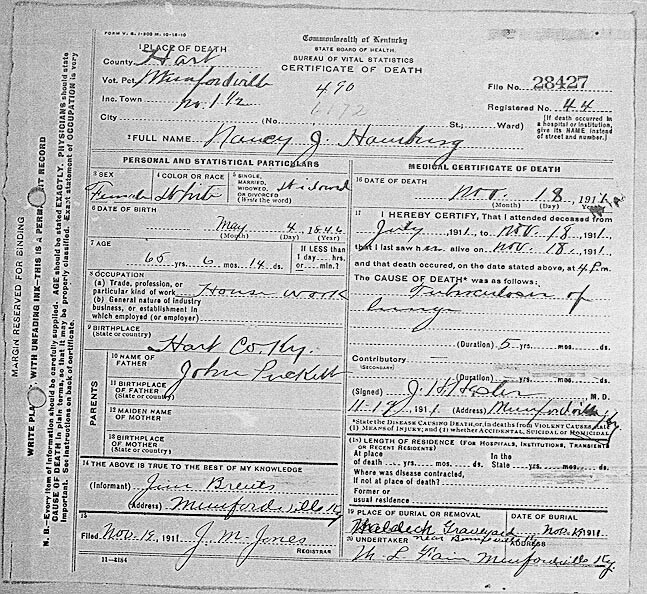 FORM V. S. 1-200 M. 10-18-10
Commonwealth of Kentucky
STATE BOARD OF HEALTH.
BUREAU OF VITAL STATISTICS
CERTIFICATE OF DEATH
1 PLACE OF DEATH
County Hart
Vot. Pct. Munfordville
Inc. Town No. 1 1/2
City (No. St.; Ward)
490
File No. 28427
Registered No. 44
(If death occurred in a hospital or institution, give its NAME instead of street and number.)
2 FULL NAME Nancy J.
PERSONAL AND STATISTICAL PARTICULARS
3 SEX Female
4 COLOR OR RACE White
5 SINGLE, MARRIED, WIDOWED, OR DIVORCED (Write the word) Widowed
6 DATE OF BIRTH
May 4 1846
(Month) (Day) (Year)
7 AGE
65 yrs. 6 mos. 14 ds.
If LESS than 1 day ... hrs. or ... min.?
8 OCCUPATION
(a) Trade, profession, or particular kind of work House work
(b) General nature of industry business, or establishment in which employed (or employer)
9 BIRTHPLACE
(State or country)
Hart Co. Ky.
PARENTS
10 NAME OF FATHER John Puckett
11 BIRTHPLACE OF FATHER (State or country)
12 MAIDEN NAME OF MOTHER
13 BIRTHPLACE OF MOTHER (State or country)
14 THE ABOVE IS TRUE TO THE BEST OF MY KNOWLEDGE
(Informant)
(Address) Munfordville Ky
15
Filed Nov. 19, 1911 J. M. Jones
REGISTRAR
11—3184
MEDICAL CERTIFICATE OF DEATH
16 DATE OF DEATH
Nov. 18, 1911
(Month) (Day) (Year)
17 I HEREBY CERTIFY, That I attended deceased from
July 1911, to Nov. 18, 1911,
that I last saw her alive on Nov. 18, 1911,
and that death occured, on the date stated above, at 4 P.m.
The CAUSE OF DEATH* was as follows:
Tuberculosis of
lungs
(Duration) 5 yrs. mos. ds.
Contributory
(SECONDARY)
(Duration) yrs. mos. ds.
(Signed) M. D.
1911 (Address) Munfordville, Ky
*State the DISEASE CAUSING DEATH, or, in deaths from VIOLENT CAUSES, state (1) MEANS OF INJURY; and (2) whether ACCIDENTAL, SUICIDAL or HOMICIDAL
18 LENGTH OF RESIDENCE (FOR HOSPITALS, INSTITUTIONS, TRANSIENTS OR RECENT RESIDENTS)
At place of death yrs. mos. ds. In the State yrs. mos. ds.
Where was disease contracted,
if not at place of death?
Former or
usual residence
19 PLACE OF BURIAL OR REMOVAL
DATE OF BURIAL
Graveyard Nov. 19 1911
near
20 UNDERTAKER
ADDRESS
Munfordville Ky.
MARGIN RESERVED FOR BINDING
WRITE PLA WITH UNFADING INK—THIS IS A PERM T RECORD
N. B. Every item of information should be carefully supplied. AGE should be stated EXACTLY. PHYSICIANS should state
CAUSE OF DEATH in plain terms, so that it may be properly classified. Exact statement of OCCUPATION is very
important. See instructions on back of certificate.